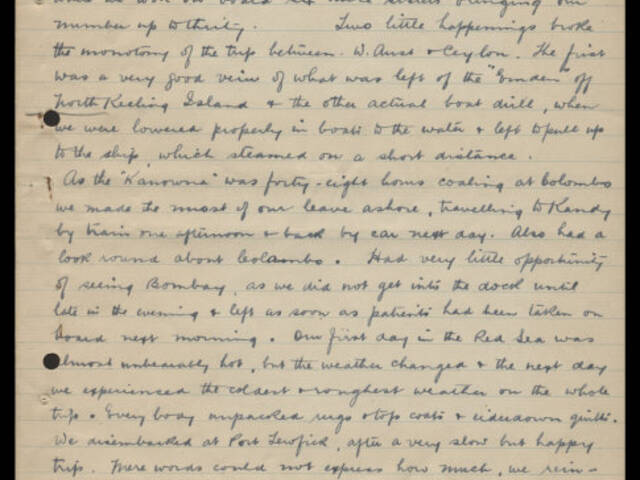 where we took on board six more sisters bringing our
number up to thirty. Two little happenings broke
the monotony of the trip between W. Aust & Ceylon. The first
was a very good veiw of what was left of the "Emden" off
North Keeling Island & the other actual boat drill, when
we were lowered properly in boats to the water & left to pull up
to the ship, which steamed on a short distance.
As the "Kanowna" was forty-eight hours coaling at Colombo
we made the most of our leave ashore, travelling to Kandy
by train one afternoon & back by car next day. Also had a
look round about Colombo. Had very little opportunity
of seeing Bombay, as we did not get into the dock until
late in the evening & left as soon as patients had been taken on
board next morning. Our first day in the Red Sea was
almost unbearably hot, but the weather changed & the next day
we experienced the coldest & roughest weather on the whole
trip. Every body unpacked rugs & top coats & eiderdown quilts.
We disembarked at Port Tewfick, after a very slow but happy
trip. Mere words could not express how much, we rein-